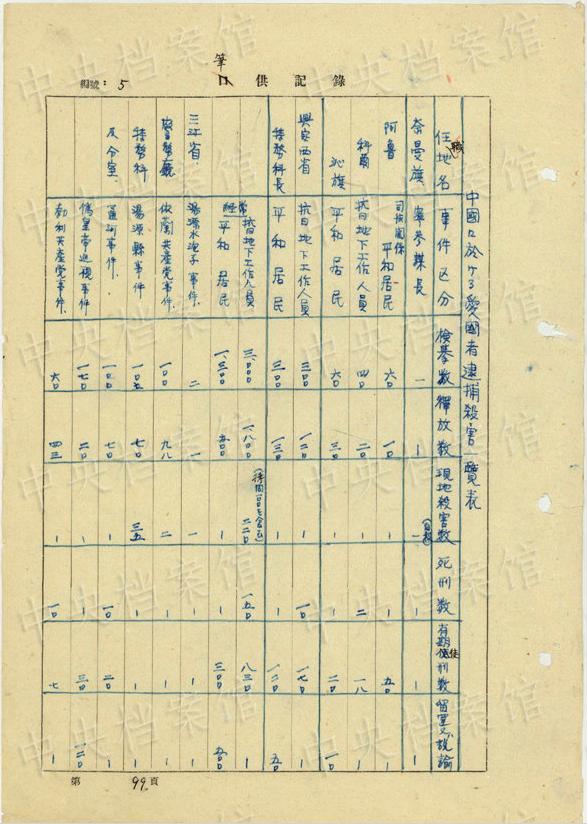 筆
編號：5
口供記錄
中國ニ於ケる愛國者逮捕殺害一覧表
任職地名 事件区分 検挙数 釋放数 現地殺害数 死刑数 有期徒刑数 留置又ハ説諭
奈曼旗 参謀長 一 一 (自殺)
阿魯 司法関係 平和居民 六〇 一〇 五〇
科爾 抗日地下工作人員 四〇 二〇 二 一八
沁旗 平和居民 六〇 三〇 二〇 一〇
興安西省 抗日地下工作人員 三〇〇 一二〇 一〇 一七〇
特務科長 平和居民 三〇〇 一三〇 一二〇 五〇
抗日地下工作人員 三、〇〇〇 一、八〇〇 二二〇 一五〇 八三〇
平和居民 一、三〇〇 五〇〇 三〇〇 五〇〇
三江省 事件 二 一 一
警務廳 依蘭共産党事件 一〇〇 九八 二
特務科 湯源縣事件 一〇五 七〇 三五
通河事件 一〇〇 七〇 一〇 二〇
及分室 偽皇帝巡視事件 一七〇 二〇 三〇 一二〇
勃利共産党事件 六〇 四三 一〇 七
第 99 頁
中央档案馆